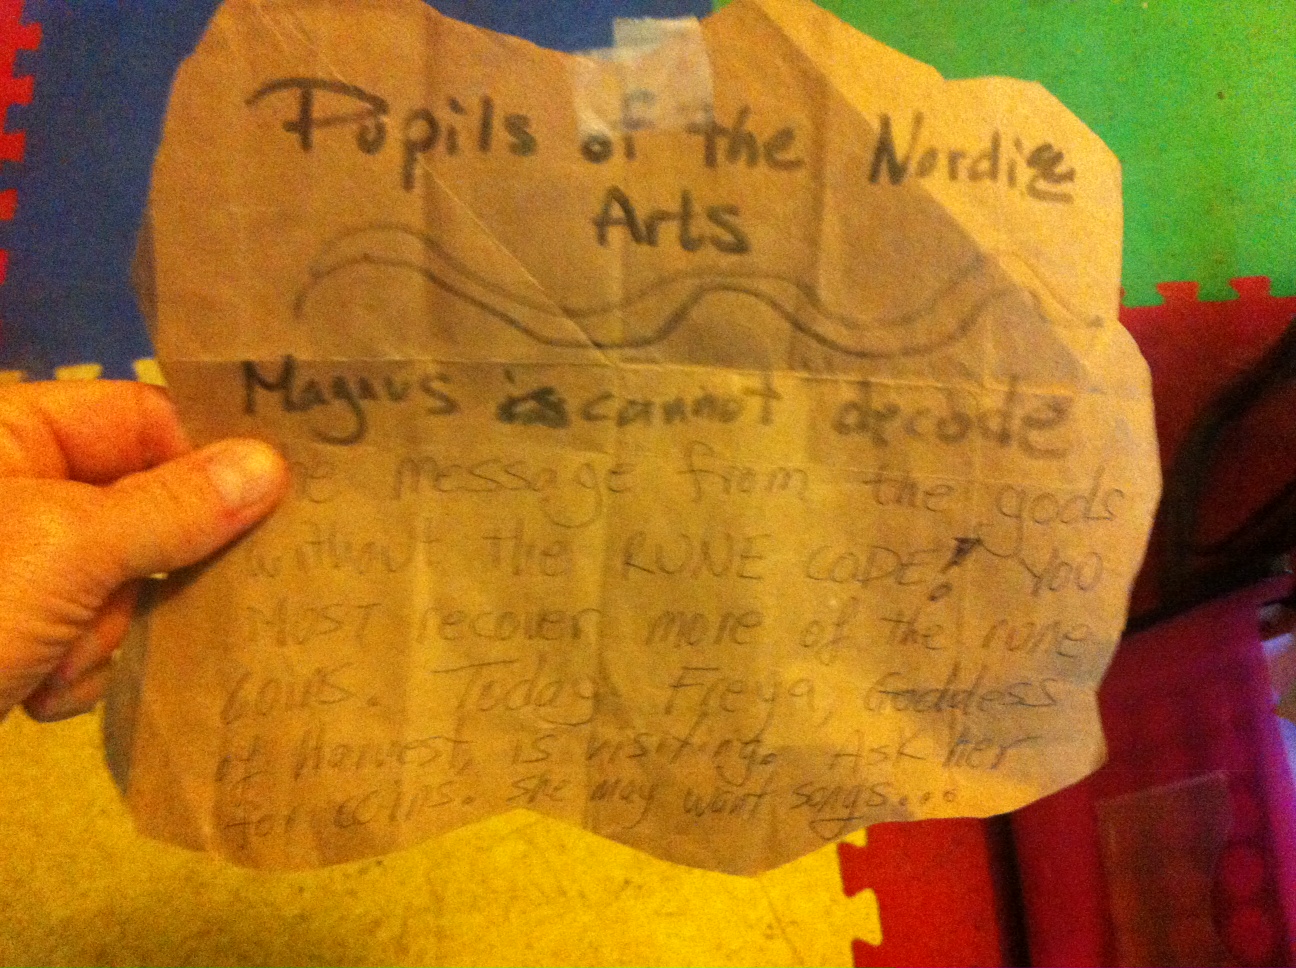 Pupils of the Nordic
Arts
Magnus cannot decode
message from the gods
without the RUNE CODE! YOU
MUST recover more of the rune
coins. Today Freya, Goddess
of Harvest, is visiting. Ask her
for coins. She may want songs...